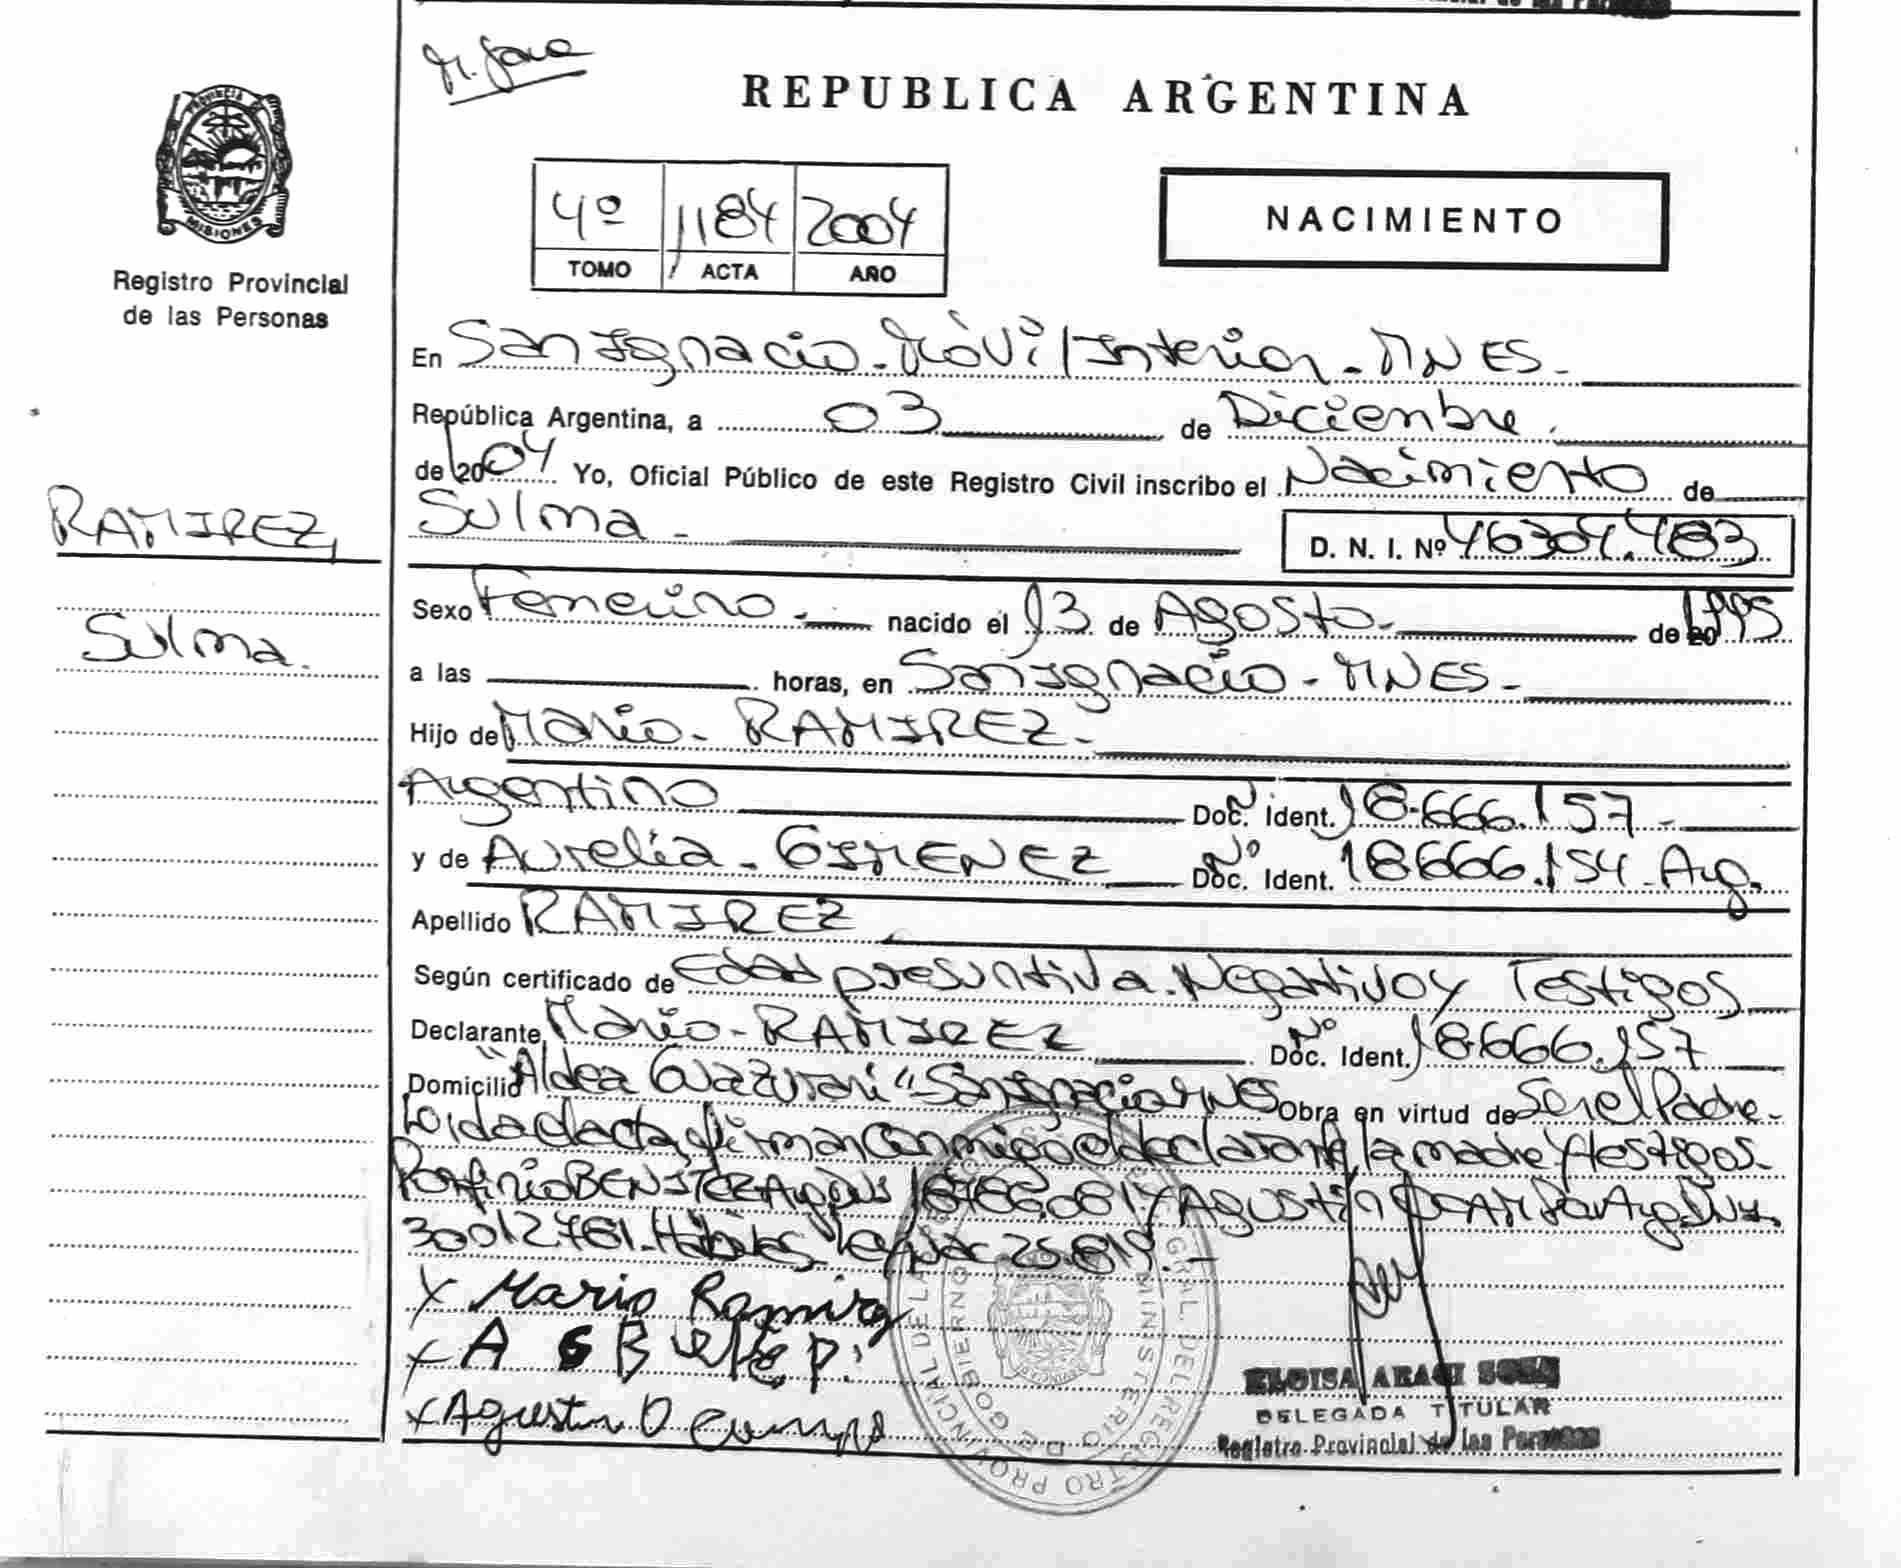 REPUBLICA ARGENTINA
PROVINCIA DE
MISIONES
Registro Provincial
de las Personas
4º 1184 2004
TOMO ACTA AÑO
NACIMIENTO
En San Ignacio - Móvil Interior - MNES -
República Argentina, a 03 de Diciembre
de 2004 Yo, Oficial Público de este Registro Civil inscribo el Nacimiento de
RAMIREZ,
Sulma - D. N. I. Nº 46304.483
Sulma.
Sexo Femenino - nacido el 13 de Agosto - de 1995
a las horas, en San Ignacio - MNES -
Hijo de Mario - RAMIREZ -
Argentino Nº Doc. Ident. 18.666.157 -
y de Aurelia - GIMENEZ Nº Doc. Ident. 18666.154 - Arg.
Apellido RAMIREZ
Según certificado de Edad presuntiva. Negativo y Testigos
Declarante Mario - RAMIREZ Nº Doc. Ident. 18.666.157
Domicilio "Aldea " San Ignacio MNES Obra en virtud de Ser el Padre -
Leida el acta, firman conmigo el declarante, la madre y testigos
Porfirio BENITEZ y Agustin
30012.781 - Hábiles. 25.819. -
x Mario Ramirez
x A G B
x Agustin O
ELOISA
DELEGADA TITULAR
Registro Provincial de las Personas
MINISTERIO DE GOBIERNO